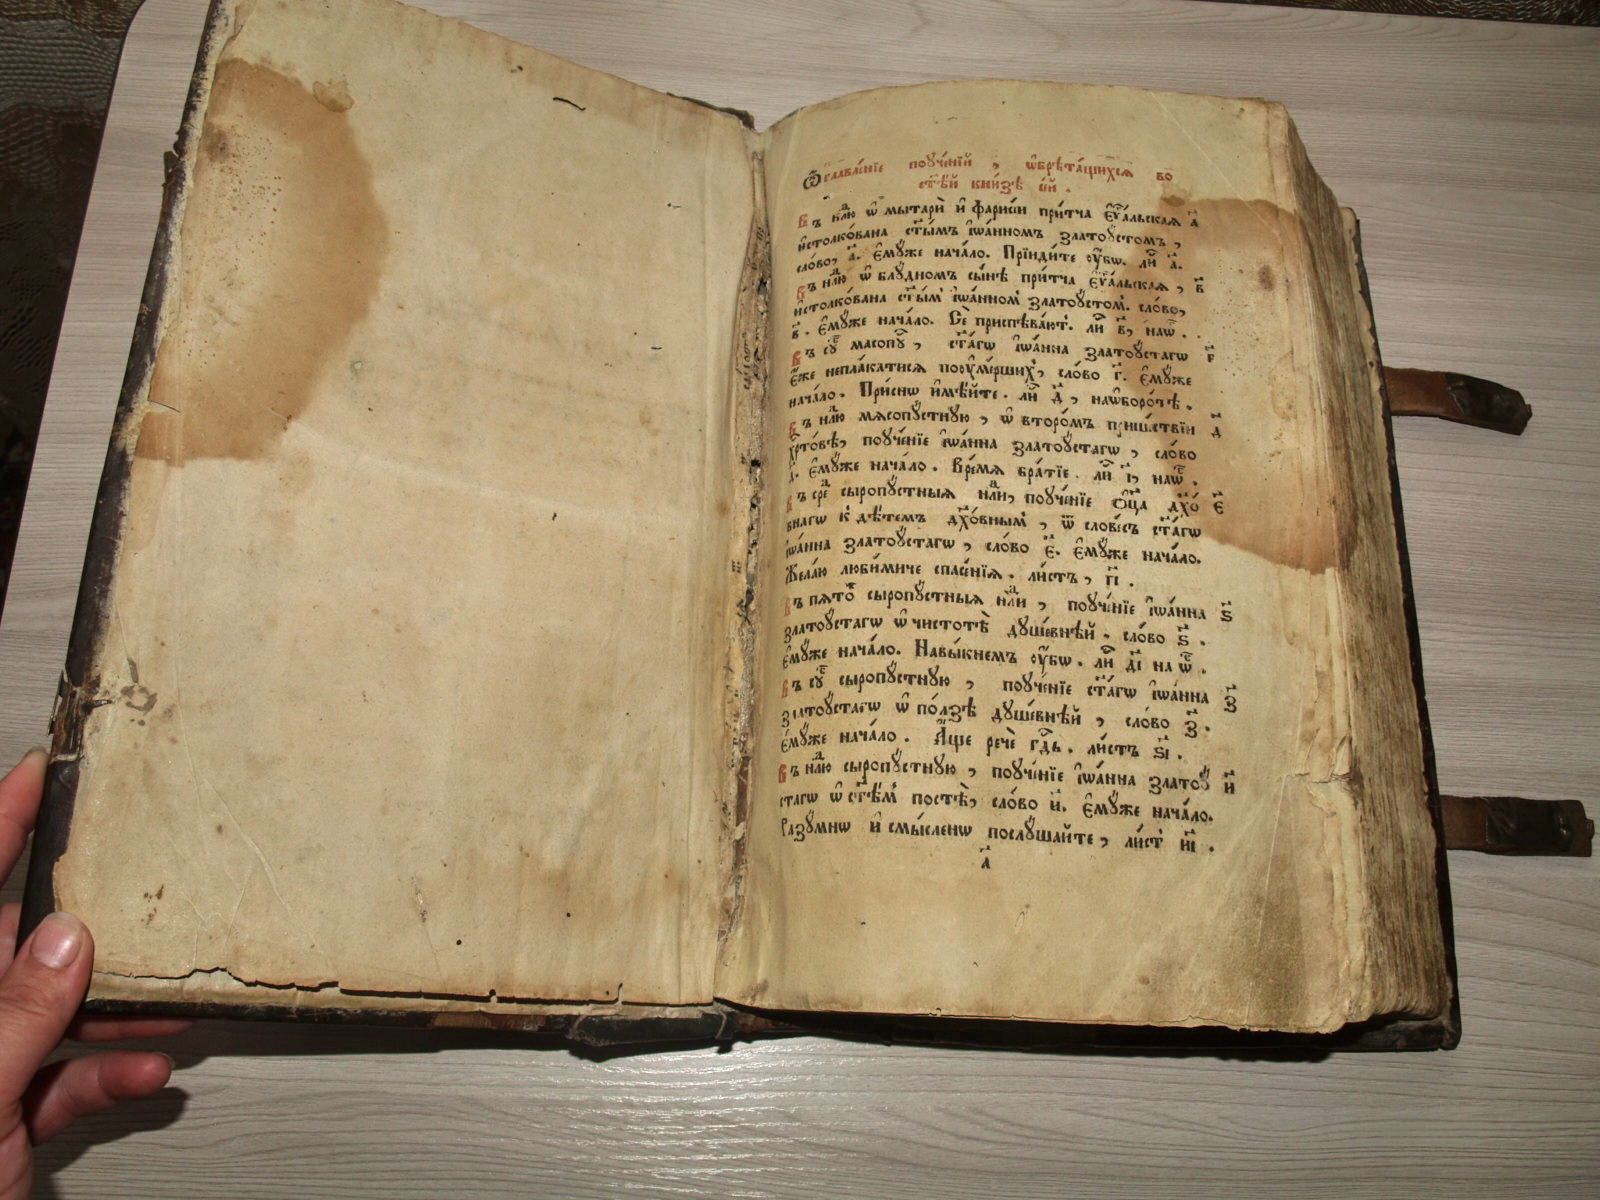 Ѡ҆главле́нїе поꙋче́нїй , ѡ҆брѣта́ющихсѧ во
ст҃ѣ́й кни́зѣ се́й .
Въ нл҃ю ѡ҆ мытарѝ и҆ фарисе́и при́тча є҆ѵⷢ҇а́льскаѧ а҃
и҆столко́вана ст҃ы́мъ і҆ѡа́нномъ златоꙋ́стомъ ,
сло́во, а҃. Є҆мꙋ́же нача́ло. Прїиди́те ᲂу҆́бѡ. лиⷭ҇ а҃.
Въ нл҃ю ѡ҆ блꙋ́дномъ сы́нѣ при́тча є҆ѵⷢ҇а́льскаѧ , в҃
и҆столко́вана ст҃ы́мꙿ і҆ѡа́нномꙿ златоꙋ́стомꙿ. сло́во,
в҃ . Є҆мꙋ́же нача́ло. Сѐ приспѣва́ютꙿ. лиⷭ҇ в҃, наѡⷡ҇ .
Въ сꙋⷠ҇ масопꙋⷭ҇ , ст҃а́гѡ і҆ѡа́нна златоꙋ́стагѡ г҃
є҆́же непла́катисѧ поᲂу҆ме́ршихꙿ, сло́во г҃. Є҆мꙋ́же
нача́ло . При́снѡ и҆мѣ́йте . лиⷭ҇ д҃ , наѡ҆боро́тѣ .
Въ нл҃ю мѧсопꙋ́стнꙋю , ѡ҆ второ́мъ прише́ствїи д҃
хрⷭ҇то́вѣ, поꙋче́нїе і҆ѡа́нна златоꙋ́стагѡ , сло́во
д҃. Є҆мꙋ́же нача́ло . Вре́мѧ бра́тїе . лиⷭ҇ і҃, наѡⷡ҇ .
Въ среⷣ сыропꙋ́стныѧ нл҃и, поꙋче́нїе ѻ҆ц҃а̀ дх҃о́ є҃
внагѡ кꙿ дѣ́темъ дх҃о́внымꙿ , ѿ слове́съ ст҃а́гѡ
і҆ѡа́нна златоꙋ́стагѡ , сло́во є҃. Є҆мꙋ́же нача́ло.
Жела́ю люби́миче спасе́нїѧ . ли́стъ , гі҃ .
Въ пѧто́ⷦ сыропꙋ́стныѧ нл҃и , поꙋче́нїе і҆ѡа́нна ѕ҃
златоꙋ́стагѡ ѡ҆ чистотѣ̀ дꙋше́внѣй . сло́во ѕ҃ .
Є҆мꙋ́же нача́ло. Навы́кнемъ ᲂу҆́бѡ . лиⷭ҇ ді҃ на ѡⷡ҇ .
Въ сꙋⷠ҇ сыропꙋ́стнꙋю , поꙋче́нїе ст҃а́гѡ і҆ѡа́нна з҃
златоꙋ́стагѡ ѡ҆ по́лзѣ дꙋше́внѣй , сло́во з҃ .
Є҆мꙋ́же нача́ло . А҆́ще речѐ гдⷭ҇ь . ли́стъ ѕі҃ .
Въ нл҃ю сыропꙋ́стнꙋю , поꙋче́нїе і҆ѡа́нна златоꙋ́ и҃
стагѡ ѡ҆ ст҃ѣ́мꙿ постѣ̀, сло́во и҃. Є҆мꙋ́же нача́ло.
Разꙋ́мнѡ и҆ смы́сленѡ послꙋ́шайте , ли́стꙿ иі҃ .
а҃